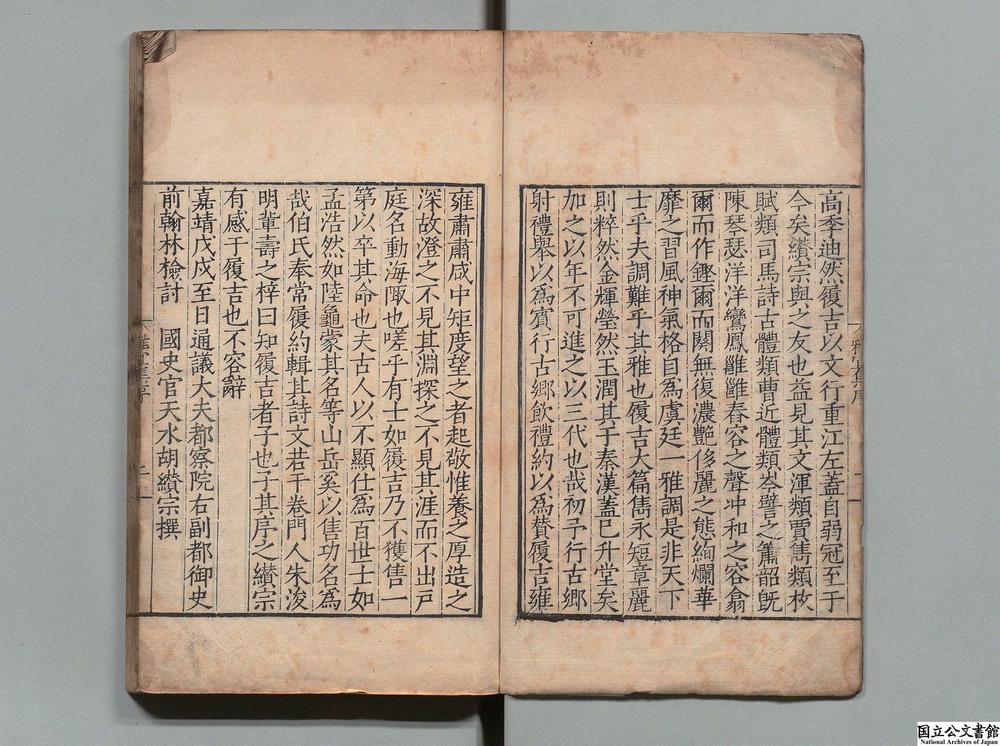 高季迪然履吉以文行重江左蓋自弱冠至于
今矣纘宗與之友也益見其文渾類賈雋類枚
賦類司馬詩古體類曹近體類岑譬之簫韶旣
陳琴瑟洋洋鸞鳳雝雝舂容之聲冲和之容翕
爾而作鏗爾而闋無復濃艷侈麗之態絢爛華
靡之習風神氣格自爲虞廷一雅調是非天下
士乎夫調難乎其雅也履吉大篇雋永短章麗
則粹然金輝瑩然玉潤其于秦漢蓋已升堂矣
加之以年不可進之以三代也哉初予行古鄉
射禮舉以爲賓行古鄉飮禮約以爲賛履吉雍
雍肅肅咸中矩度望之者起敬惟養之厚造之
深故澄之不見其淵探之不見其涯而不出戸
庭名動海陬也嗟乎有士如履吉乃不獲售一
第以卒其命也夫古人以不顯仕爲百世士如
孟浩然如陸龜蒙其名等山岳奚以售功名爲
哉伯氏奉常履約輯其詩文若干卷門人朱浚
明輩壽之梓曰知履吉者子也子其序之纘宗
有感于履吉也不容辭
嘉靖戊戌至日通議大夫都察院右副都御史
前翰林檢討 國史官天水胡纘宗撰
国立公文書館
National Archives of Japan